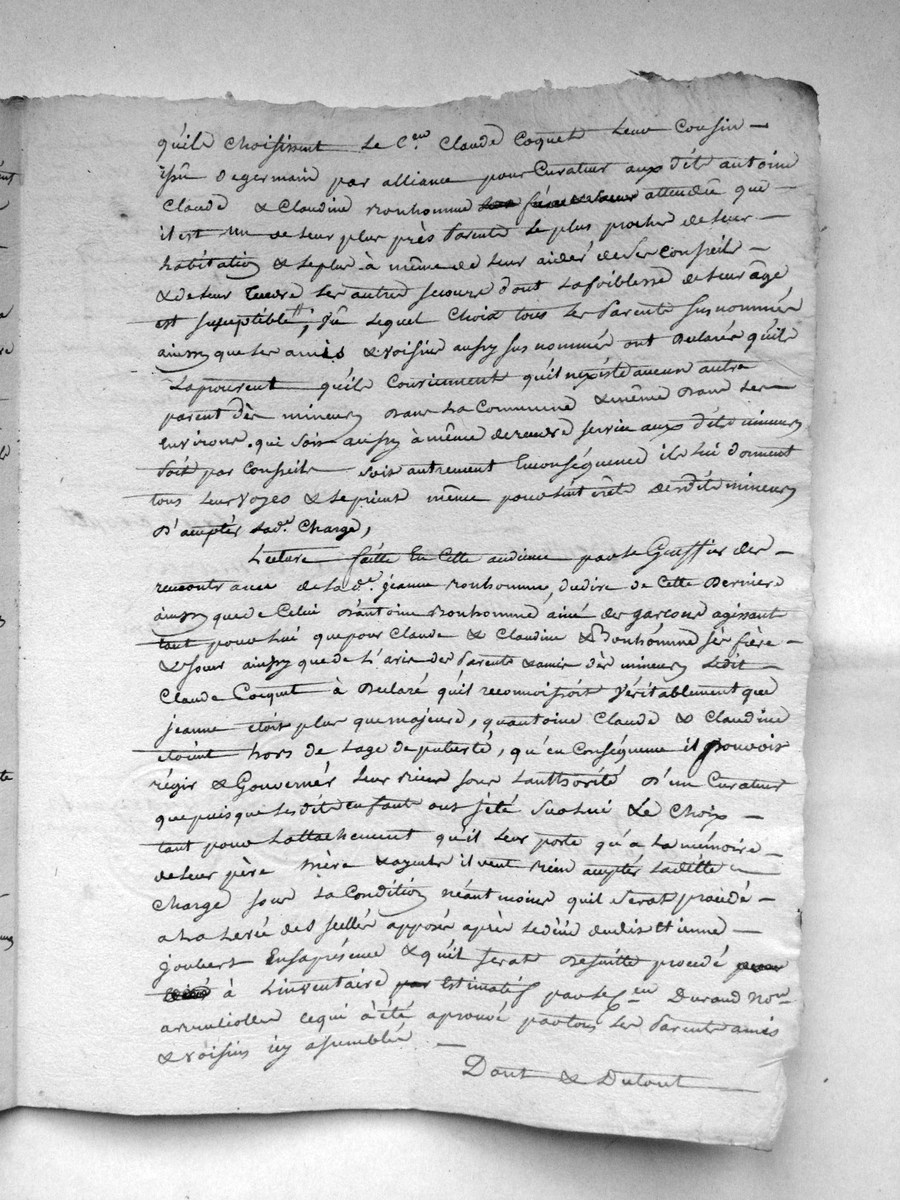 qu'ils choisissent le C.en Claude Coquet leur Cousin
issu degermain par alliance pour Curateur aux dit antoine
Claude & Claudine Bonhomme attendüe que
il est un de leur plus près parents le plus procher de leur
habitation & le plus à même de leur aider de ser conseils
& de leur rendre les autres secours dont la foiblesse de leur âge
est suseptible, sur lequel Choix tous les parents sus nommés
ainssy que les amis & voisins aussy sus nommés ont declarés qu'ils
laprouvent qu'ils conviennent qu'il nexiste aucun autre
parent des mineurs dans la Commune & même dans les
Environs qui soit aussy à même derendre service aux dits mineurs
soit par Conseils soit autrement Enconséquence ils lui donnent
tous leur voyes & le prient même pour lint érêt desdits mineurs
d'acepter lad.e Charge,
Lecture faitte En cette audience par le Greffier des
remontrance de la d.e jeanne Bonhomme, dudire de cette derniere
ainssy que de Celui d'antoine Bonhomme ainé des garcons agissant
tant pour lui que pour Claude & Claudine Bonhomme ses frère
& sour ainssy que de l'avis des parents & amis des mineurs ledit
Claude Cocquet à declaré qu'il reconnoissoit véritablement que
jeanne étoit plus que majeure, quantoine Claude & Claudine
etoint hors de lage de puberté, qu'en Conséquence il pouvoit
régir & Gouverner leur biens sous lauthorité d'un Curateur
que puis que lesdits enfants ont jété sur lui le Choix
tant pour lattachement qu'il leur porte qu'à la mémoire
de leur père mère & ayeuls il veut bien acepter laditte
Charge sous la Condition néant moins quil serat procédé
a la levée des scellés apposés après le décès dudit Etienne
joubert Ensaprésence & quil serat desuitte procedé
à Linventaire Estimatif par le C.en Durand no.re
ce qui à été aprouvé par tous les parents amis
& voisins icy assemblés
Dont &